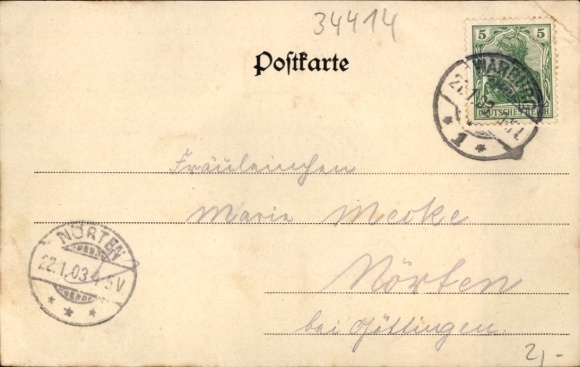 34414
Postkarte
5 5
DEUTSCHES REICH
WARBURG
1
Fräuleinchen
Maria Merke
Nörten
bei Göttingen
NÖRTEN
22.1.03.4-5V
2,-